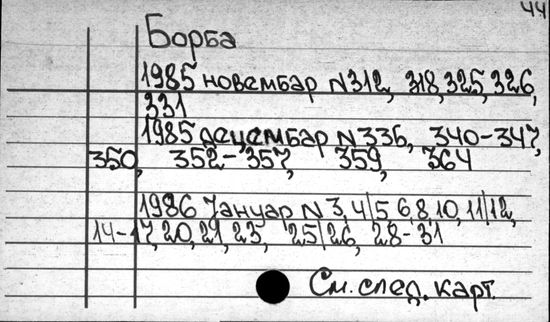 44
Борба
1985 новембар N312, 318,325,326,
331
1985 децембар N336, 340-347,
350, 352-357, 359, 364
1986 Јануар N 3,4/5,6,8,10,11/12,
14-17,20,21,23, 25/26, 28-31
См. след. карт.